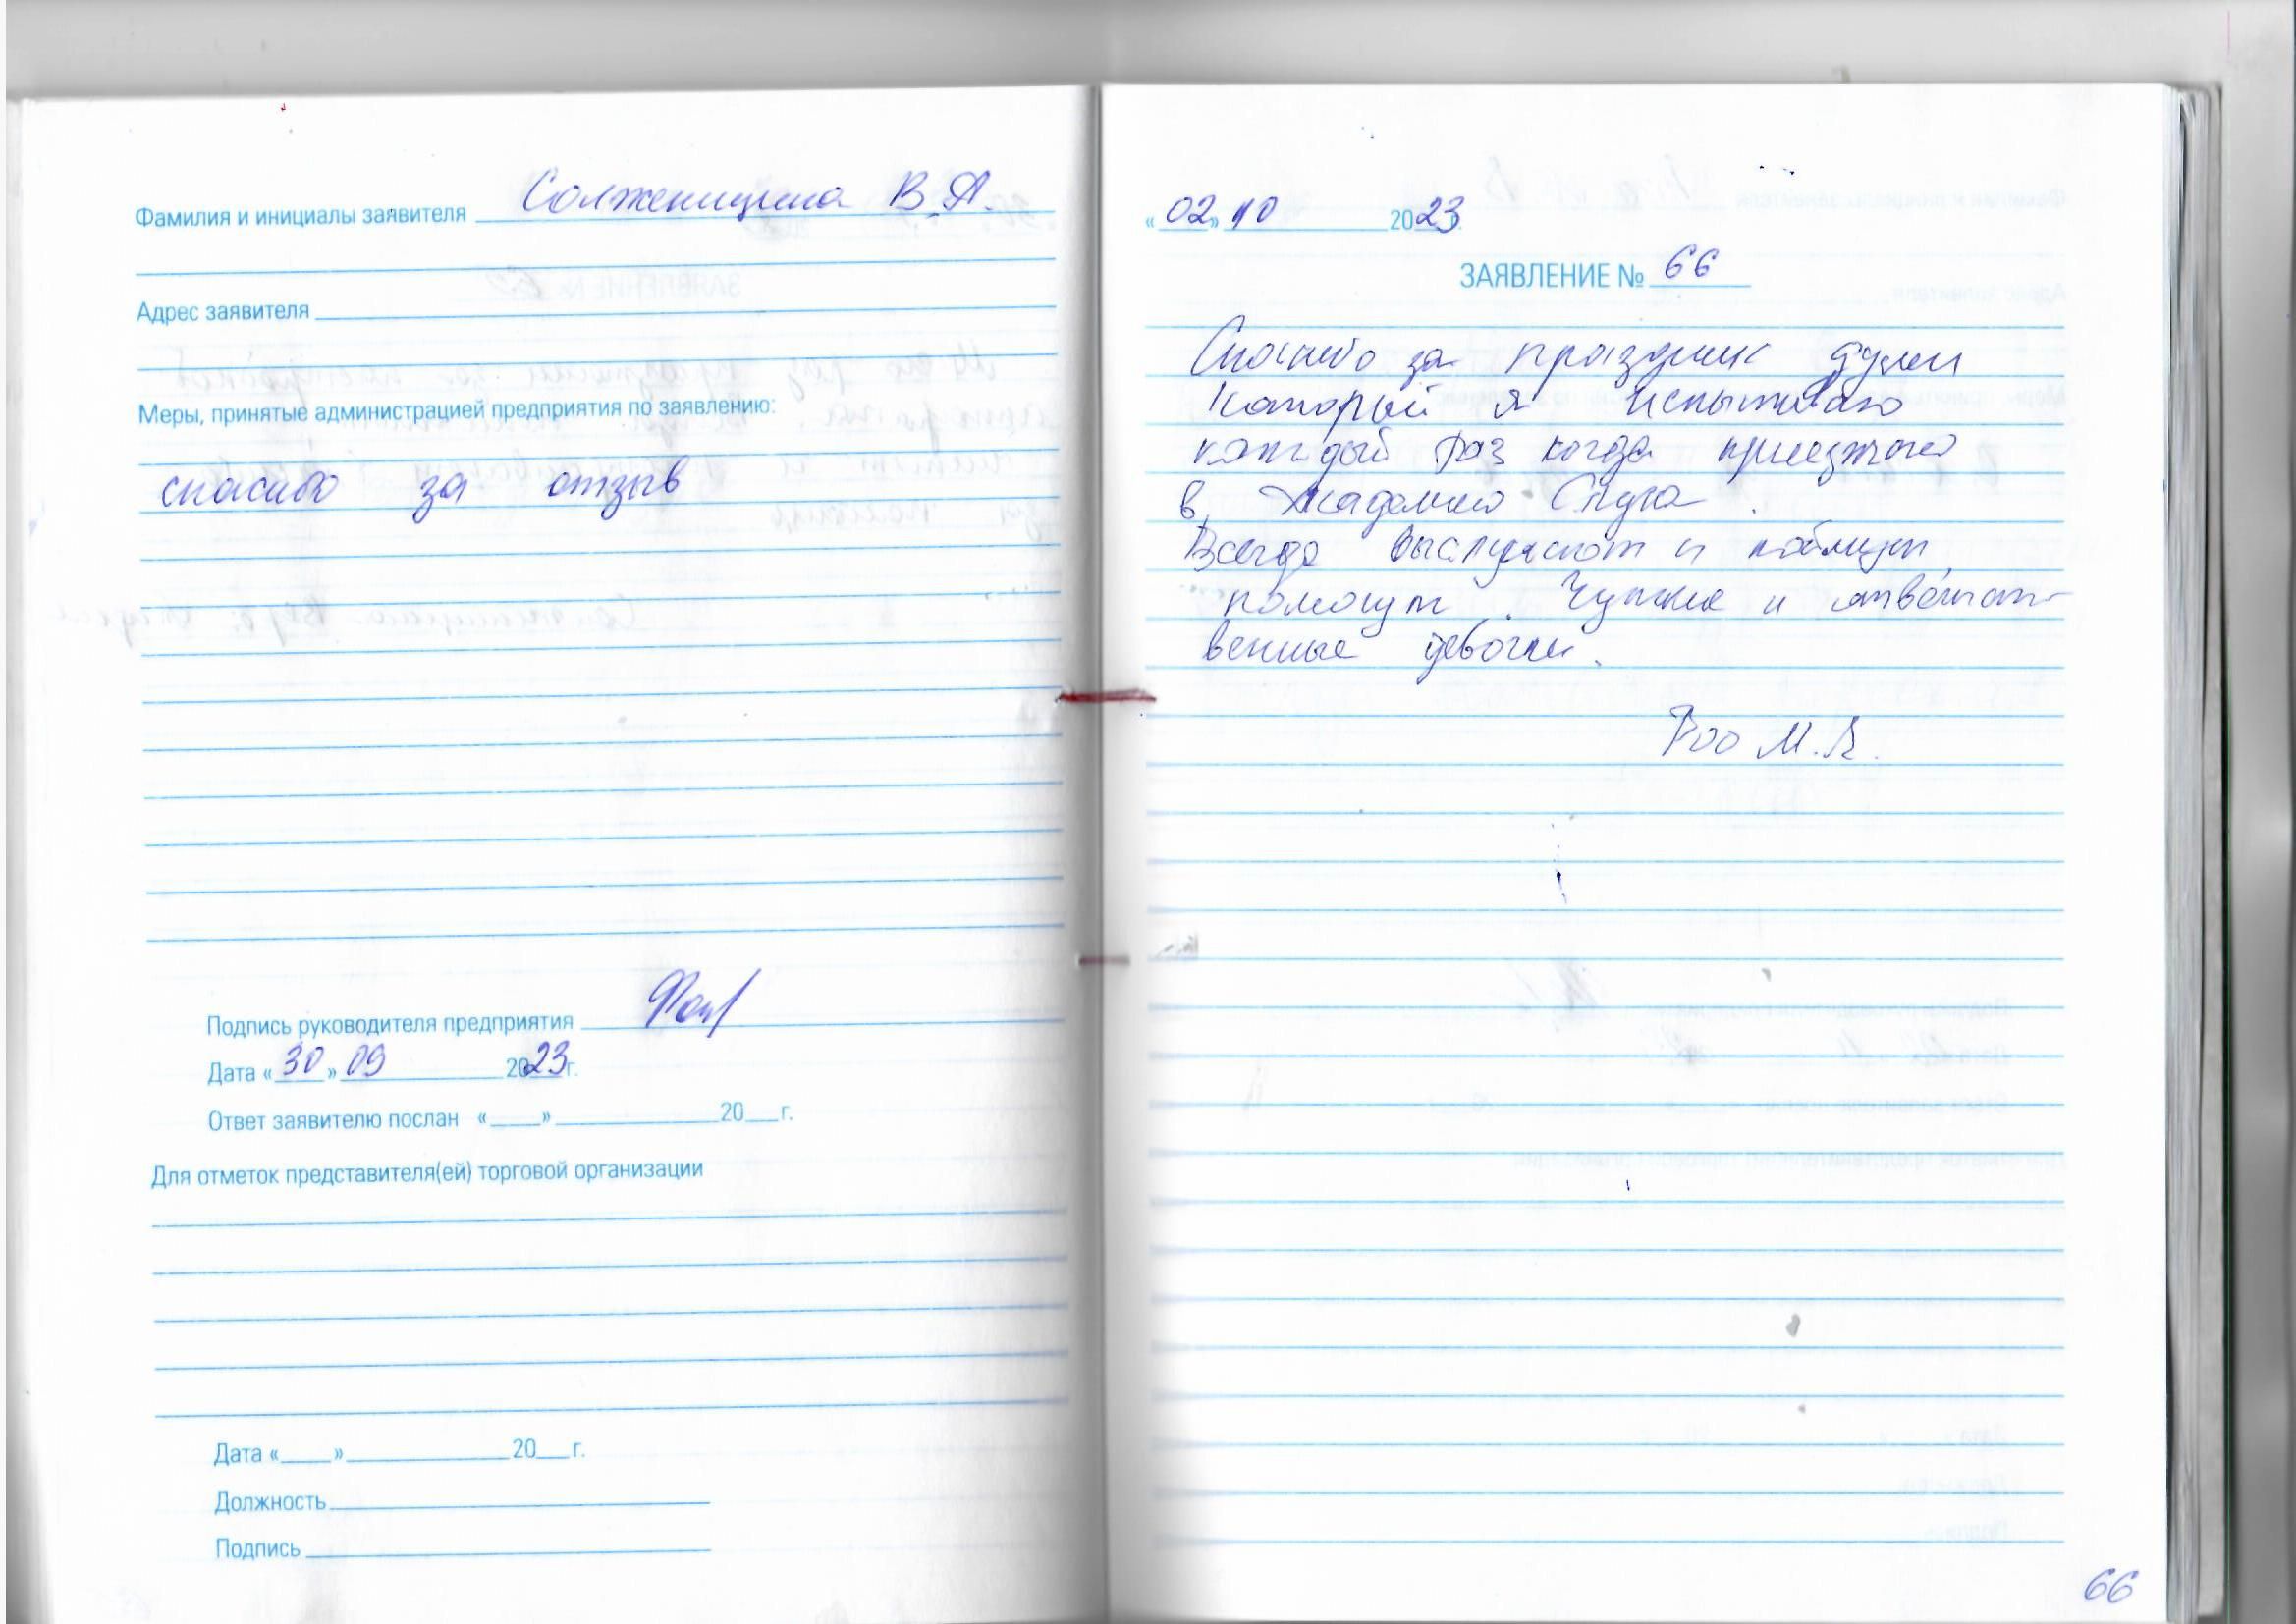 Фамилия и инициалы заявителя Солженицина В.А.
Адрес заявителя
Меры, принятые администрацией предприятия по заявлению:
спасибо за отзыв
Подпись руководителя предприятия
Дата «30» 09 2023 г.
Ответ заявителю послан « » 20 г.
Для отметок представителя(ей) торговой организации
Дата « » 20 г.
Должность
Подпись
«02» 10 2023 г.
ЗАЯВЛЕНИЕ № 66
Спасибо за праздник души
который я испытываю
каждый раз когда приезжаю
в Академию Слуха.
Всегда выслушают и поймут,
помогут. Чуткие и ответст-
венные девочки.
Роо М.В.
66